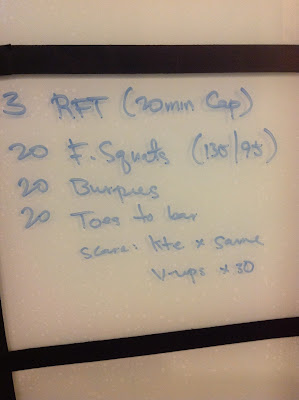 3 RFT (20min Cap)
20 F. Squats (135/95)
20 Burpees
20 Toes to bar
scale: lite x same
V-ups x 30